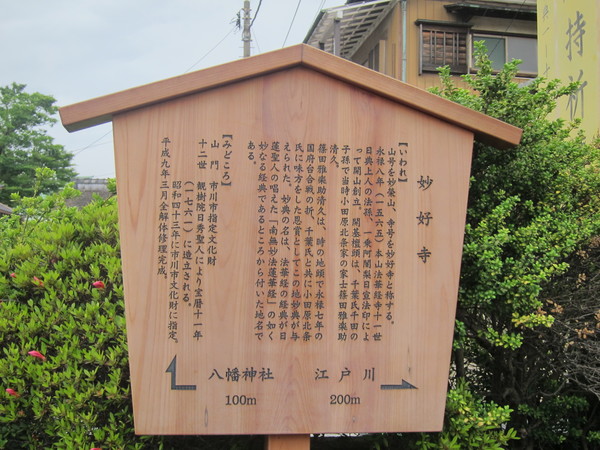 妙好寺
【いわれ】
山号を妙榮山、寺号を妙好寺と称する。
永禄八年(一五六五)本山法華経寺十一世
日典上人の法孫、一乗阿闍梨日宣法印によ
って開山創立。開基檀頭は、千葉氏千田の
子孫で当時小田原北条家の家士篠田雅楽助
清久。
篠田雅楽助清久は、時の地頭で永禄七年の
国府台合戦の折、千葉氏と共に小田原北条
氏に味方をした恩賞としてこの地妙典が与
えられた。妙典の名は、法華経の経典が日
蓮聖人の唱えた「南無妙法蓮華経」の如く
妙なる経典であるところから付いた地名で
ある。
【みどころ】
山門 市川市指定文化財
十二世 観樹院日秀聖人により宝暦十一年
(一七六一)に造立される。
昭和四十三年に市川市文化財に指定。
平成九年三月全解体修理完成。
八幡神社 江戸川
100m 200m
持祈